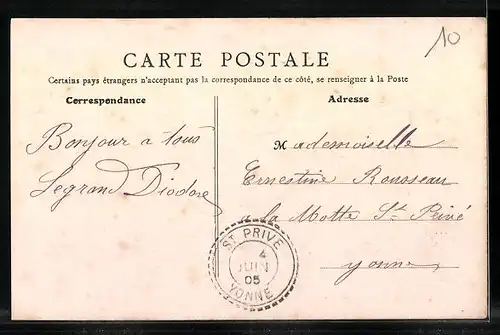 10
CARTE POSTALE
Certains pays étrangers n'acceptant pas la correspondance de ce côté, se renseigner à la Poste
Correspondance
Adresse
Bonjour a tous
Legrand Diodore
Mademoiselle
Ernestine Rousseau
a la Motte St Privé
Yonne
ST PRIVE
4
JUIN
05
YONNE